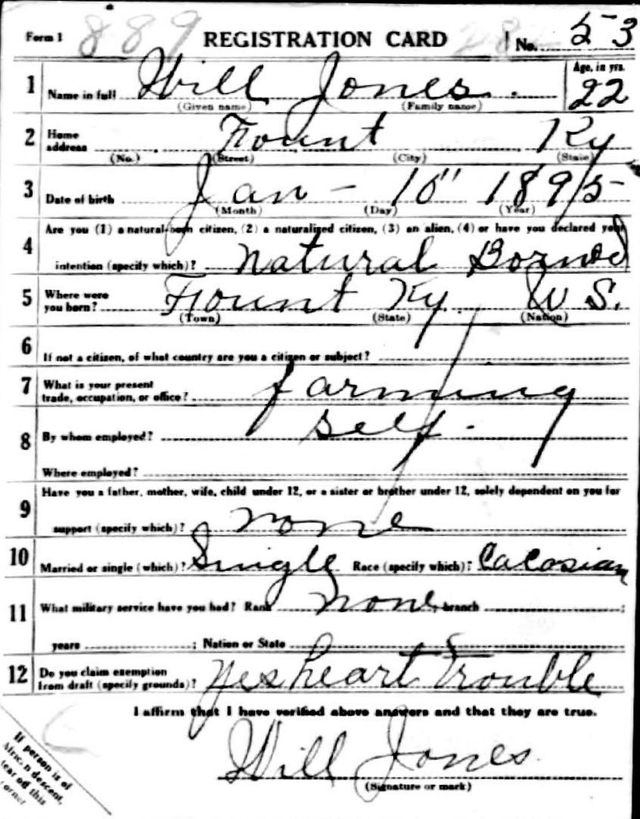 Form 1 889 REGISTRATION CARD No. 53
1 Name in full Will Jones. Age, in yrs. 22
(Given name) (Family name)
2 Home address Fount Ky
(No.) (Street) (City) (State)
3 Date of birth Jan - 10" 1895
(Month) (Day) (Year)
4 Are you (1) a natural-born citizen, (2) a naturalized citizen, (3) an alien, (4) or have you declared your
intention (specify which)? Natural Borned
5 Where were you born? Fount Ky. U S.
(Town) (State) (Nation)
6 If not a citizen, of what country are you a citizen or subject?
7 What is your present trade, occupation, or office? farming
8 By whom employed? Self.
Where employed?
9 Have you a father, mother, wife, child under 12, or a sister or brother under 12, solely dependent on you for
support (specify which)? none
10 Married or single (which)? Single Race (specify which)? Cacosian
11 What military service have you had? Rank none, branch ;
years ; Nation or State
12 Do you claim exemption from draft (specify grounds)? Yes heart Trouble
I affirm that I have verified above answers and that they are true.
Will Jones.
(Signature or mark)
If person is of
African descent,
tear off this
corner